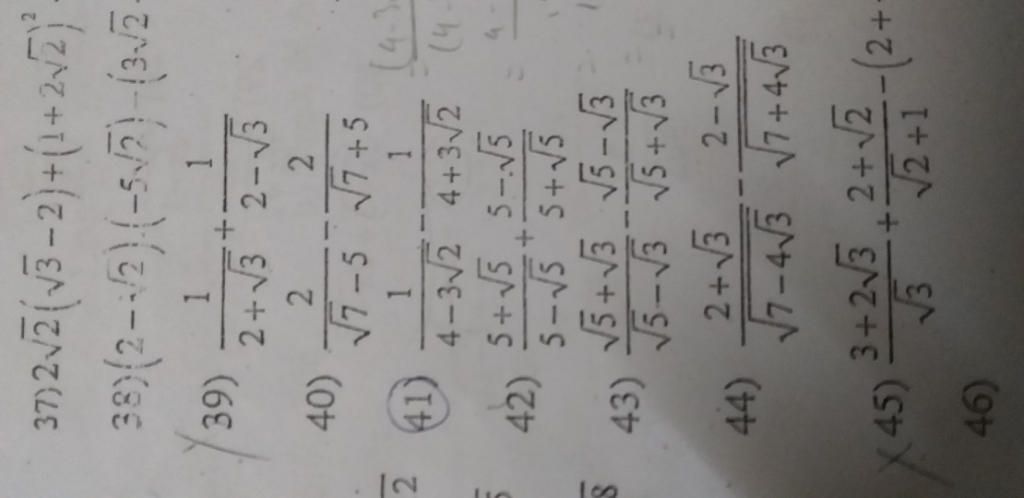 37) 2√2(√3 − 2) + (1 + 2√2)²
38) (2 − √2)·(−5√2) − (3√2 −
39) 1/(2 + √3) + 1/(2 − √3)
40) 2/(√7 − 5) − 2/(√7 + 5)
41) 1/(4 − 3√2) − 1/(4 + 3√2)
42) (5 + √5)/(5 − √5) + (5 − √5)/(5 + √5)
43) (√5 + √3)/(√5 − √3) − (√5 − √3)/(√5 + √3)
44) (2 + √3)/√(7 − 4√3) − (2 − √3)/√(7 + 4√3)
45) (3 + 2√3)/√3 + (2 + √2)/(√2 + 1) − (2 +
46)